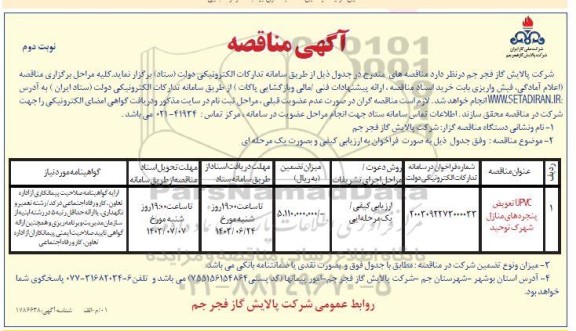 آگهی مناقصه
نوبت دوم
شرکت ملی گاز ایران
شرکت پالایش گاز فجر جم
شرکت پالایش گاز فجر جم درنظر دارد مناقصه های مندرج در جدول ذیل از طریق سامانه تدارکات الکترونیکی دولت (ستاد) برگزار نماید. کلیه مراحل برگزاری مناقصه
(اعلام آمادگی، فیش واریزی بابت خرید اسناد مناقصه، ارائه پیشنهادات فنی/مالی وبازگشایی پاکات) از طریق سامانه تدارکات الکترونیکی دولت (ستاد ایران) به آدرس
WWW.SETADIRAN.IR انجام خواهد شد. لازم است مناقصه گران در صورت عدم عضویت قبلی، مراحل ثبت نام در سایت مذکور ودریافت گواهی امضای الکترونیکی را جهت
شرکت در مناقصه محقق سازند. اطلاعات تماس سامانه ستاد جهت انجام مراحل عضویت در سامانه، مرکز تماس: ۴۱۹۳۴-۰۲۱ می باشد.
۱- نام ونشانی دستگاه مناقصه گزار: شرکت پالایش گاز فجر جم
۲- موضوع مناقصه: وفق جدول ذیل به صورت فراخوان به ارزیابی کیفی و بصورت یک مرحله ای
ردیف
عنوان مناقصه
شماره فراخوان در سامانه تدارکات الکترونیکی دولت
روش دعوت / مراحل اجرای تشریفات
میزان تضمین (به ریال)
مهلت دریافت اسناد از طریق سامانه ستاد
مهلت تحویل اسناد مناقصه از طریق سامانه
گواهینامه مورد نیاز
۱
UPVC تعویض
پنجره های منازل
شهرک توحید
۲۰۰۳۰۹۲۲۷۲۰۰۰۰۲۳
ارزیابی کیفی
یک مرحله ایی
۵.۱۱۰.۰۰۰.۰۰۰
تا ساعت ۱۹:۰۰ روز
شنبه مورخ
۱۴۰۳/۰۶/۲۴
تا ساعت ۱۹:۰۰ روز
شنبه مورخ
۱۴۰۳/۰۷/۰۷
ارایه گواهینامه صلاحیت پیمانکاری از اداره
تعاون، کار و رفاه اجتماعی در کد / رشته تعمیر و
نگهداری، یا ارائه حداقل رتبه ۵ در رشته ابنیه از
سازمان مدیریت وبرنامه ریزی و همچنین ارائه
گواهی تایید صلاحیت ایمنی پیمانکاران از اداره
تعاون، کار و رفاه اجتماعی
۳- میزان ونوع تضمین شرکت در مناقصه: مطابق با جدول فوق و بصورت نقدی یا ضمانتنامه بانکی می باشد.
۴- آدرس استان بوشهر - شهرستان جم - شرکت پالایش گاز فجر جم - امور پیمانها (کد پستی ۷۵۵۱۵۶۱۵۴۸۶۴) می باشد و تلفن ۶-۳۱۶۸۲۰۳۴-۰۷۷ پاسخگوی شما
خواهد بود.
روابط عمومی شرکت پالایش گاز فجر جم
شناسه آگهی: ۱۷۸۶۶۳۸